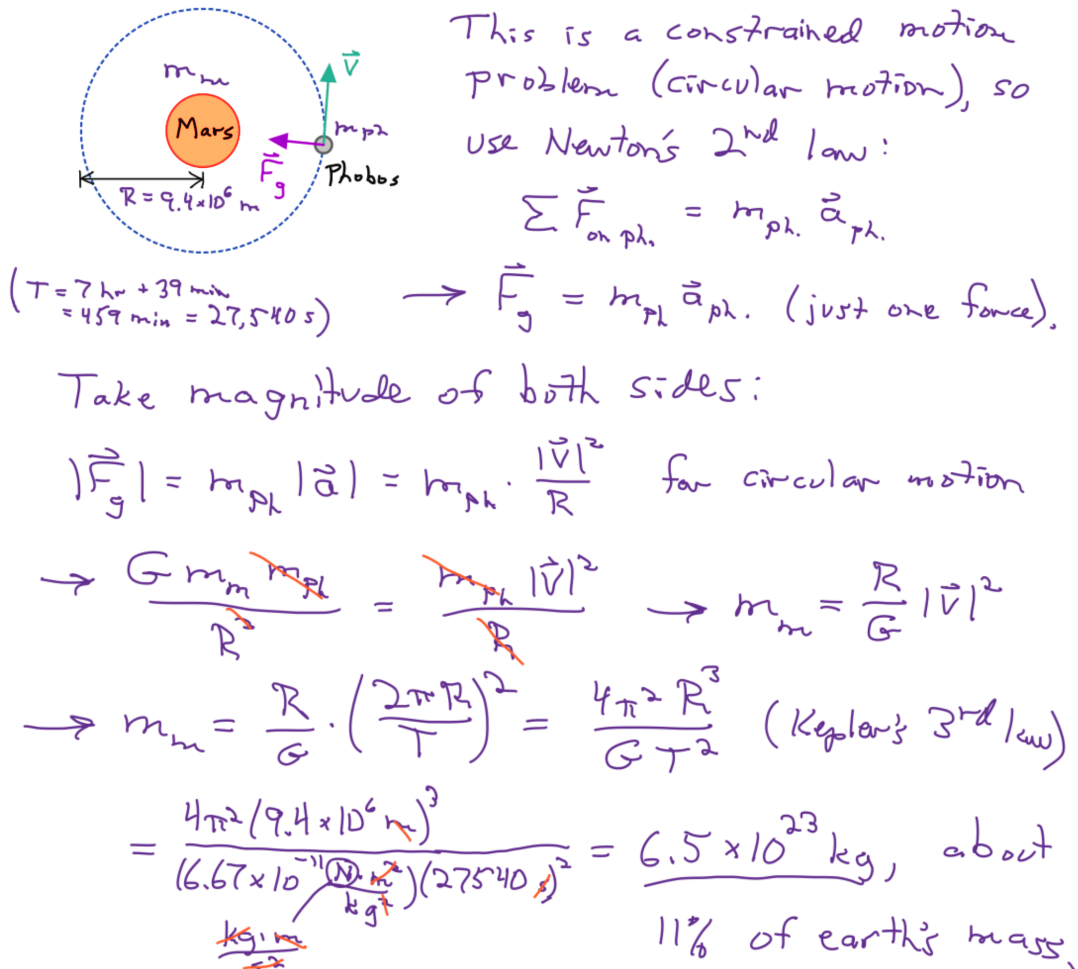 This is a constrained motion
problem (circular motion), so
use Newton's 2nd law:
m_m
Mars
V⃗
m_ph
F⃗_g
Phobos
R = 9.4×10⁶ m
∑ F⃗_on ph. = m_ph. a⃗_ph.
(T = 7 hr + 39 min
= 459 min = 27,540 s)
→ F⃗_g = m_ph a⃗_ph. (just one force).
Take magnitude of both sides:
|F⃗_g| = m_ph |a⃗| = m_ph · |V⃗|²/R for circular motion
→ G m_m m_ph / R² = m_ph |V⃗|² / R → m_m = R/G |V⃗|²
→ m_m = R/G · (2πR/T)² = 4π² R³ / G T² (Kepler's 3rd law)
= 4π² (9.4×10⁶ m)³ / (6.67×10⁻¹¹ N·m²/kg²)(27540 s)² = 6.5×10²³ kg, about
kg·m/s²
11% of earth's mass.